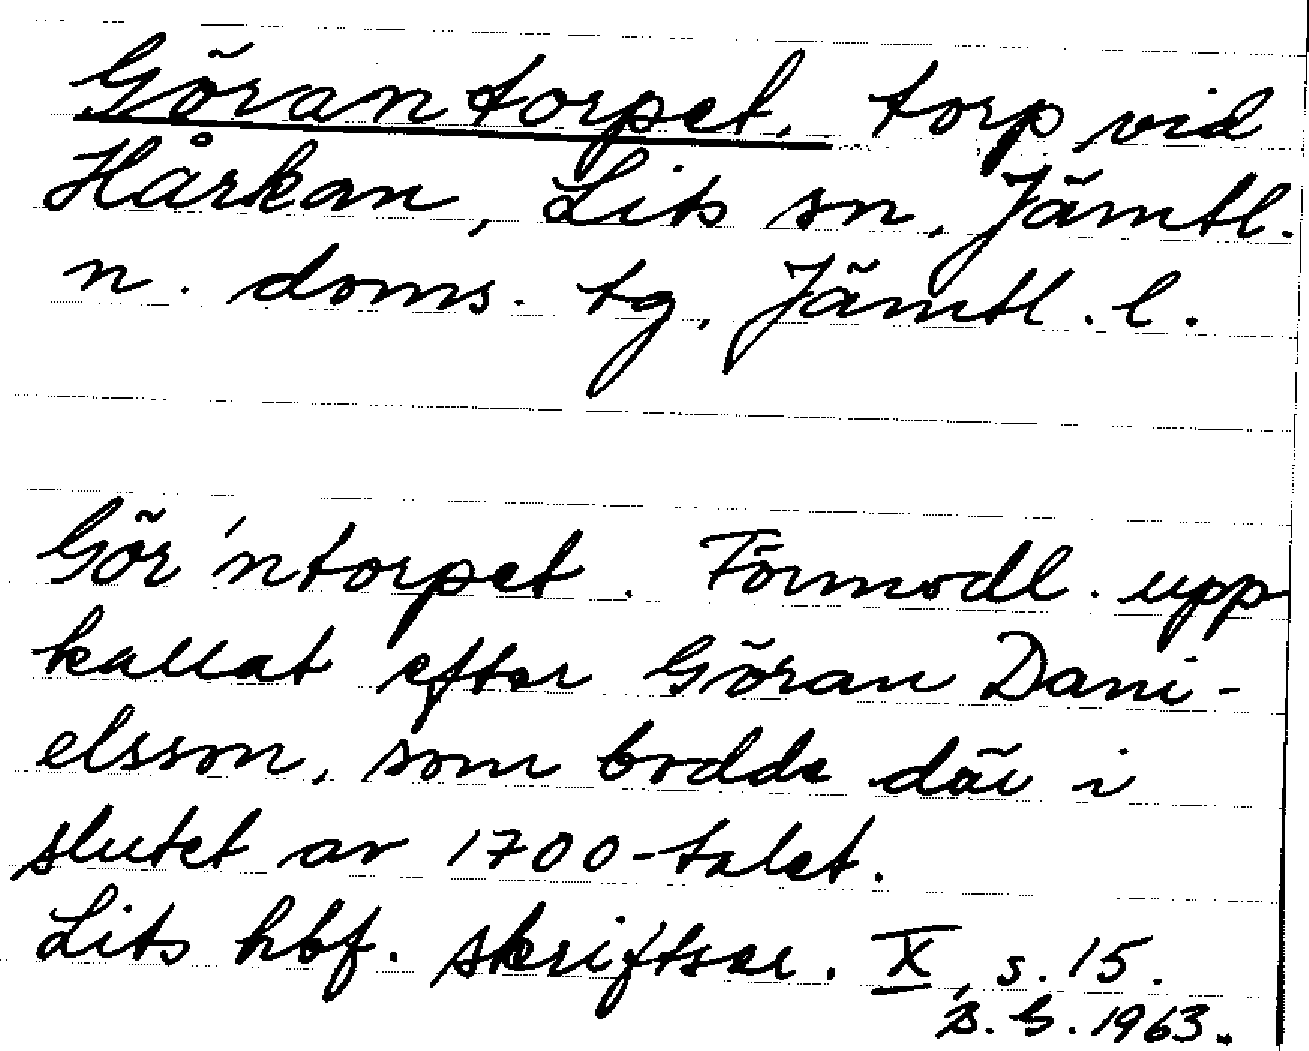 Görantorpet, torp vid
Hårkan, Lits sn, Jämtl.
n. doms. tg, Jämtl. l.
Gör'ntorpet. Förmodl. upp
kallat efter Göran Dani-
elsson, som bodde där i
slutet av 1700-talet.
Lits hbf. skriftser. X, s. 15.
B. G. 1963.